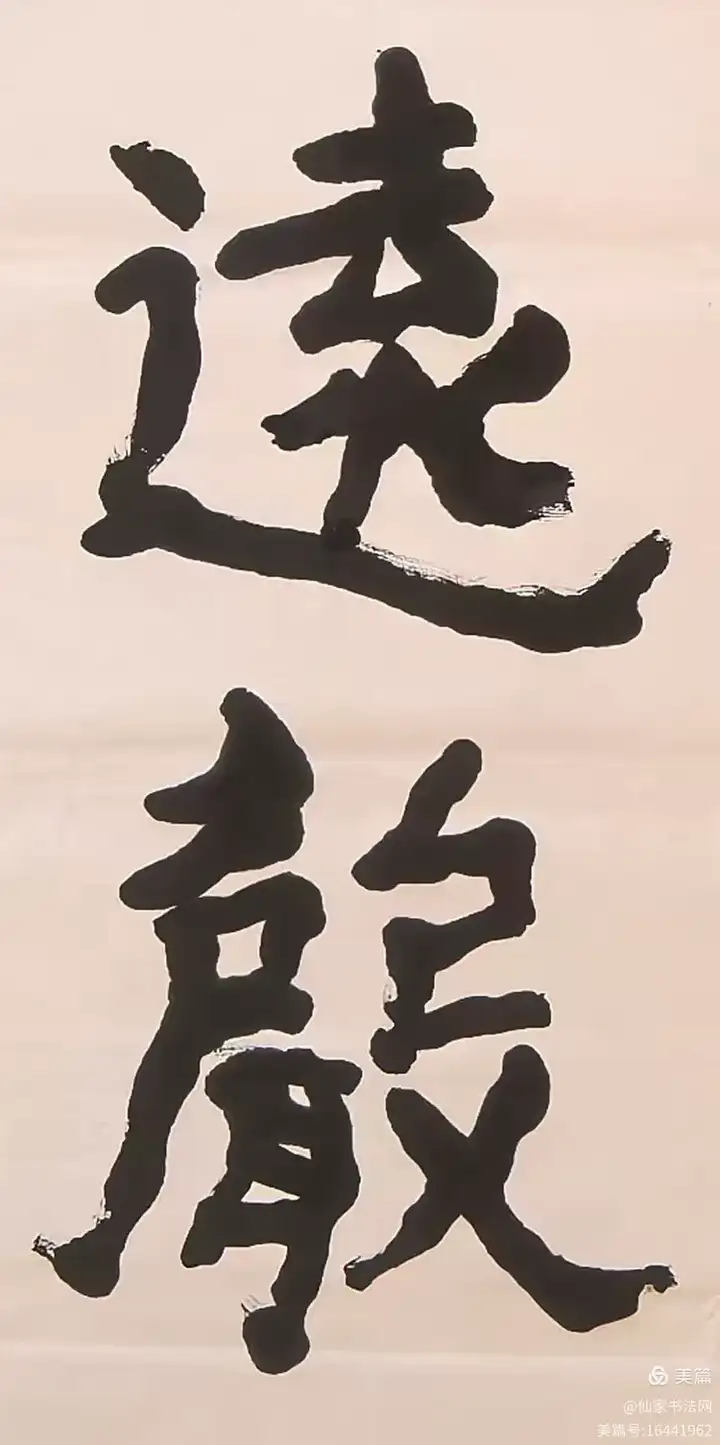 遠
聲
美篇
@仙家书法网
美篇号:16441962